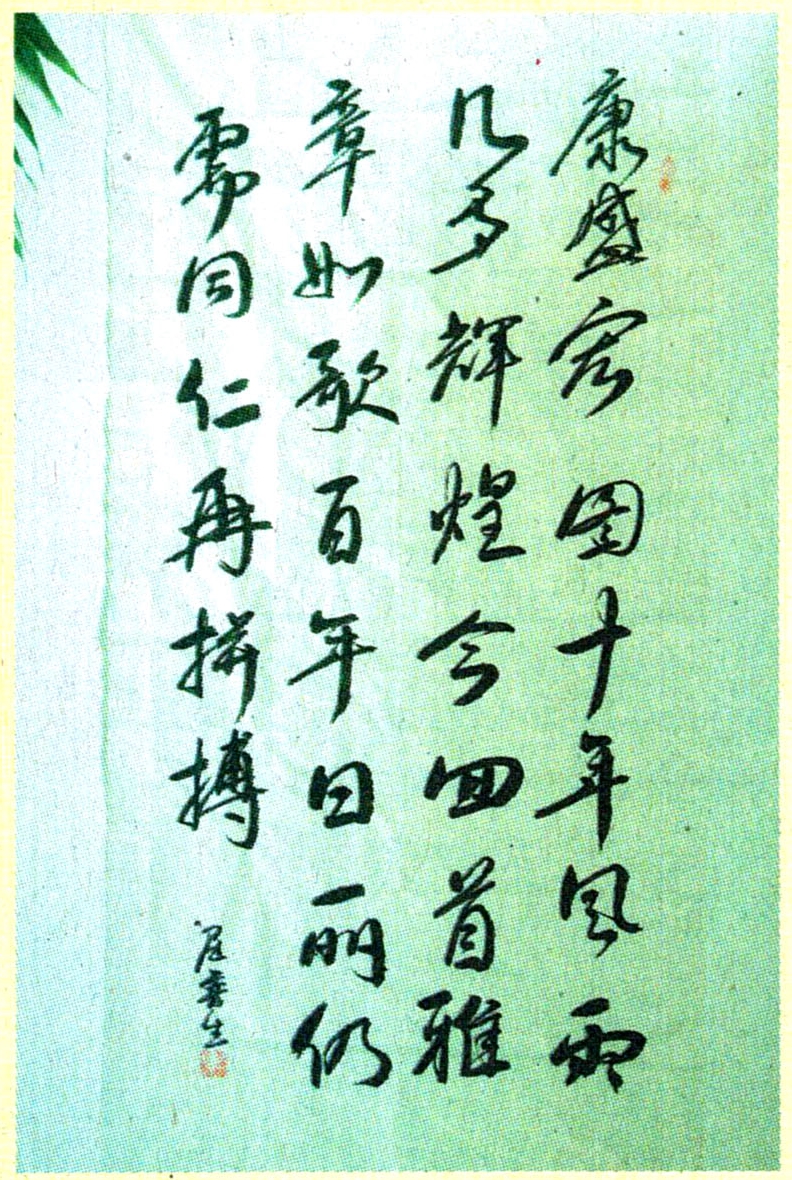 康盛宏图十年风雨
几多辉煌今回首雅
章如歌百年日丽仍
需同仁再拼搏